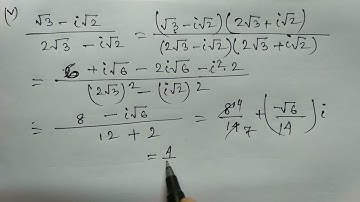 (v) (√3 - i√2)/(2√3 - i√2) = ((√3 - i√2)(2√3 + i√2))/((2√3 - i√2)(2√3 + i√2))
= (6 + i√6 - 2i√6 - i²·2)/((2√3)² - (i√2)²)
= (8 - i√6)/(12 + 2) = 8 4/14 7 + (-√6/14) i
= 4/